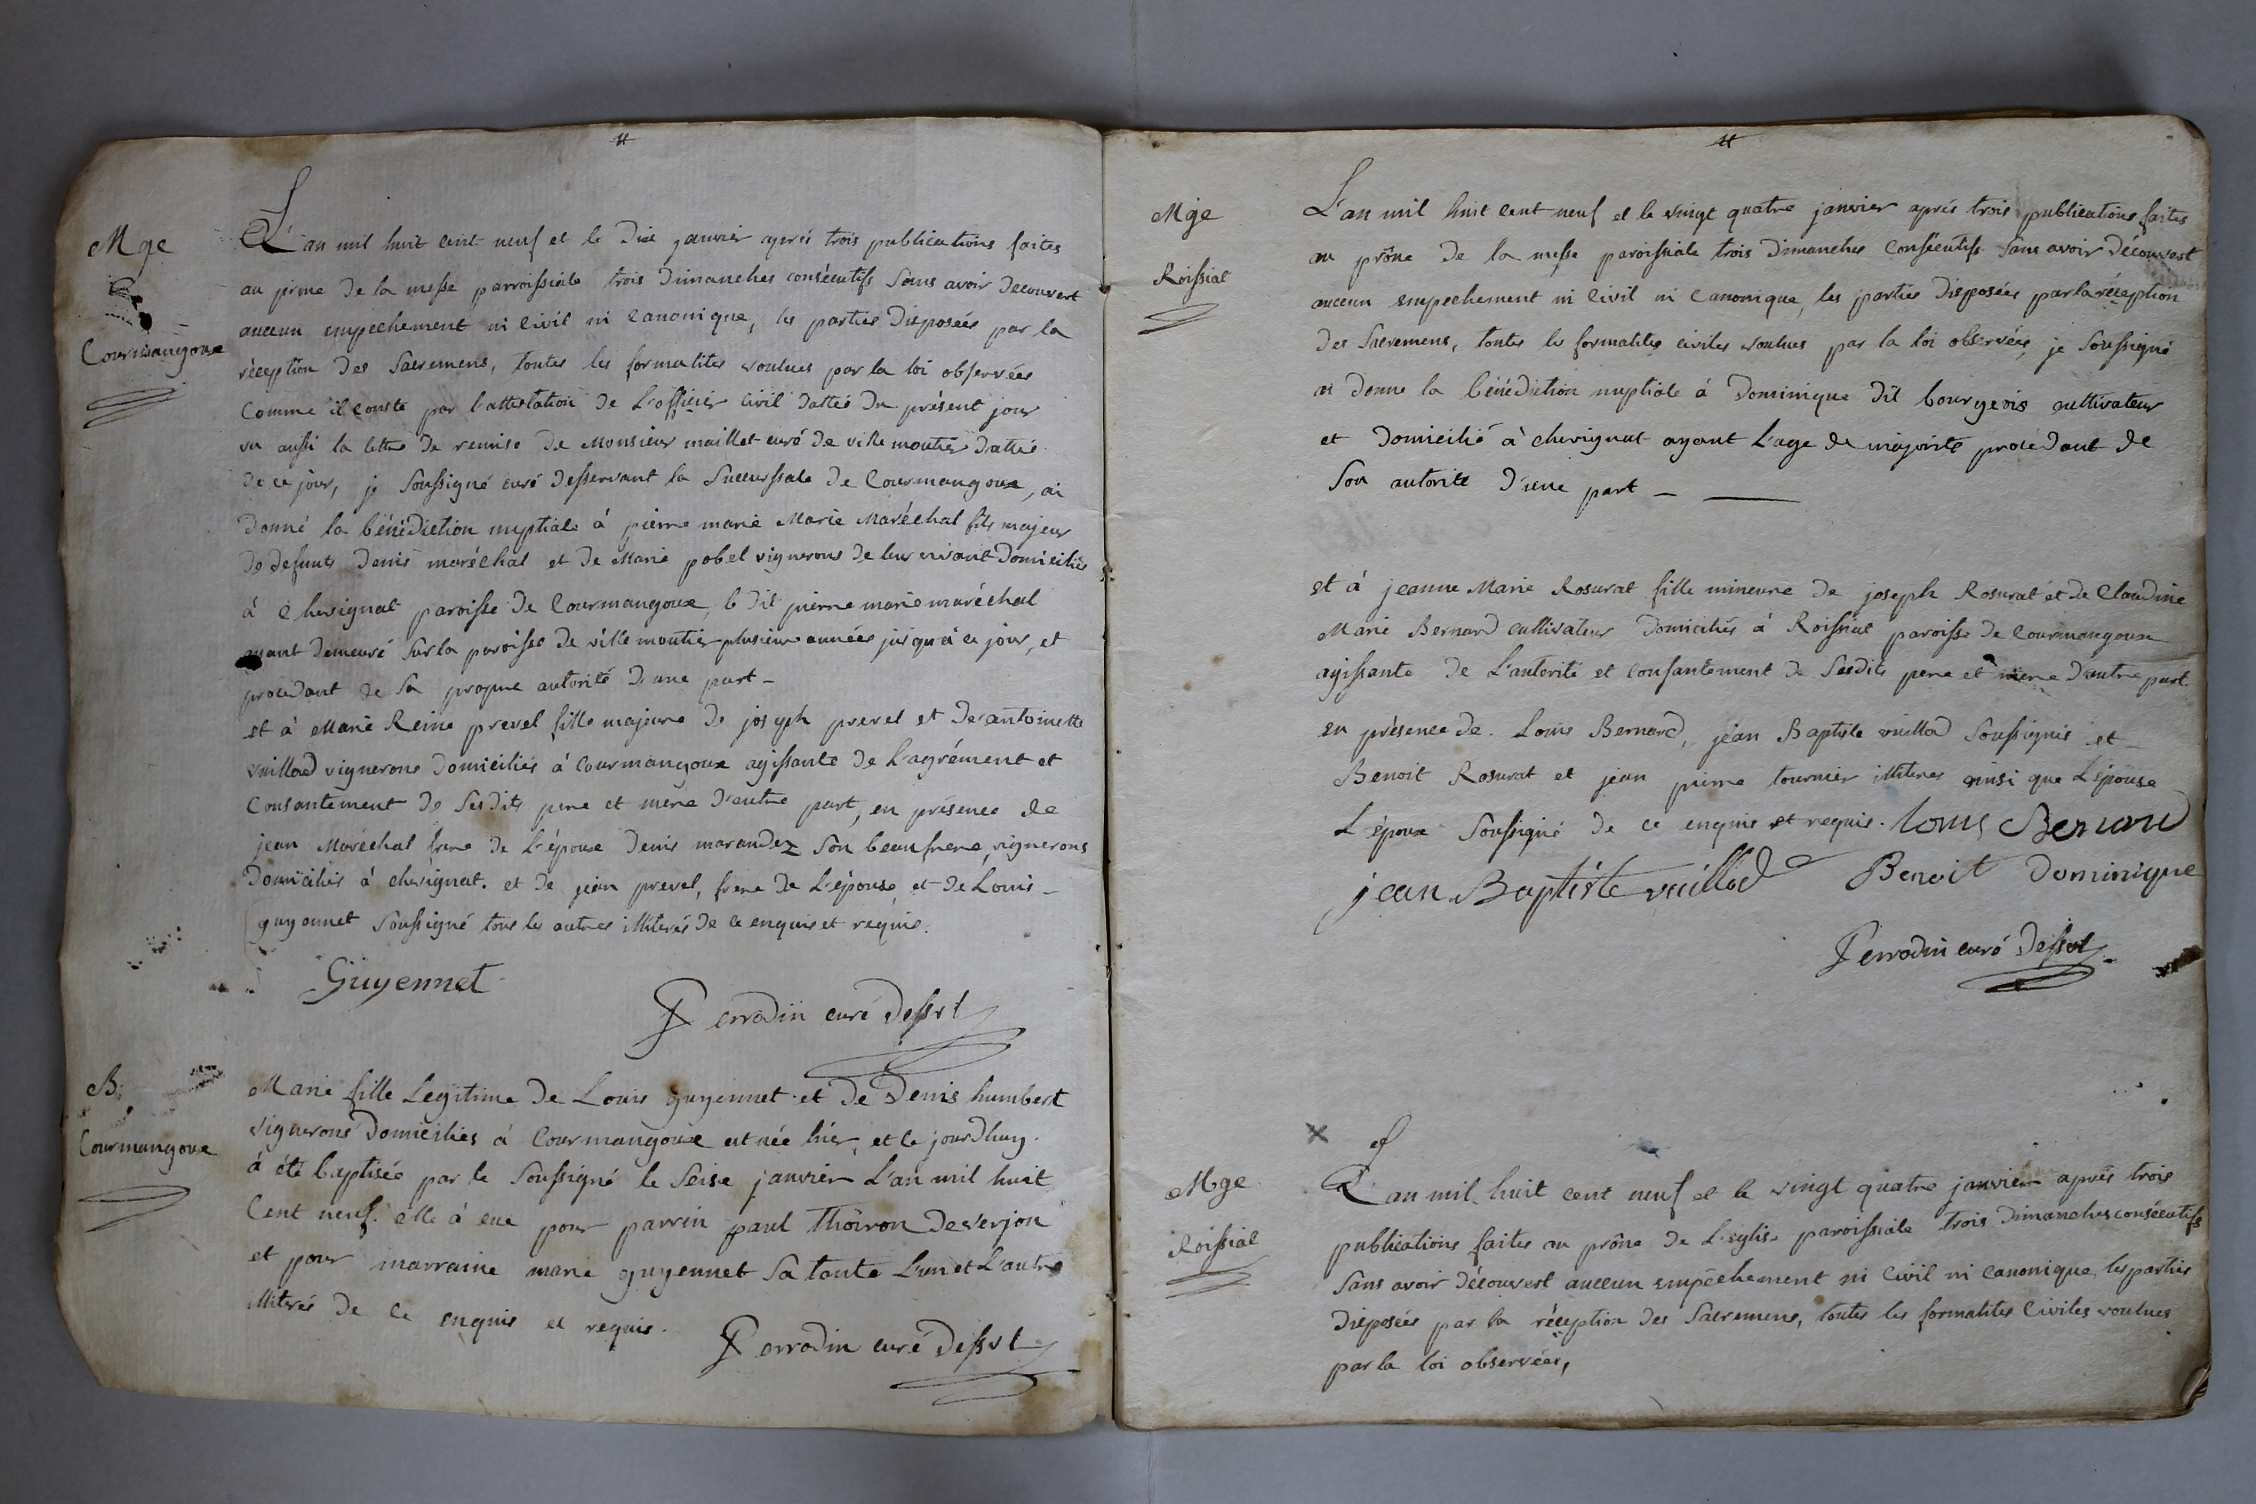 Mge
Courmangoux
L'an mil huit cent neuf et le Dix janvier après trois publications faites
au prone De la messe parroissiale trois Dimanches consécutifs Sans avoir Decouvert
aucun empechement ni Civil ni Canonique, les parties Disposées par la
réception Des Sacremens, toutes les formalites voulues par la loi observées
Comme il conste par l'attestation De L'officier Civil Dattée Du présent jour
vu aussi la lettre De remise De Monsieur maillet curé De ville moutier Dattée
De ce jour, je Soussigné curé Desservant la Succurssale De Courmangoux, ai
Donné la bénédiction nuptiale à pierre marie Marie Maréchal fils majeur
De defunts Denis maréchal et De Marie pobel vignerons De leur vivant Domiciliés
à Chevignat paroisse De Courmangoux, le Dit pierre marie maréchal
ayant Demeuré Sur la paroisse De ville moutier plusieurs années jusqu'à ce jour, et
procedant De Sa propre autorité D'une part -
et à Marie Reine prevel fille majeure De joseph prevel et De antoinette
vuillod vignerons Domiciliés à Courmangoux agissante De L'agrément et
Consantement De Sesdits pere et mere D'autre part, en présence De
jean Maréchal frere De L'époux Denis marandez Son beaufrere, vignerons
Domiciliés à chevignat. et De jean prevel, frere De L'épouse, et De Louis -
guyennet Soussigné tous les autres illiterés De ce enquis et requis.
Guyennet
Perrodin curé Dessvt
B.
Courmangoux
Marie fille Legitime De Louis guyennet et De Denis humbert
vignerons Domiciliés à Courmangoux est née hier, et ce jourDhuy
à été baptisée par le Soussigné le Seise janvier L'an mil huit
Cent neuf. elle à eue pour parrin paul Thoiron De verjon
et pour marraine marie guyennet Sa tante L'un et L'autre
illiterés De Ce enquis et requis.
Perrodin curé Dessvt
Mge
Roissiat
L'an mil huit Cent neuf et le vingt quatre janvier après trois publications faites
au prône De la messe paroissiale trois Dimanches Consécutifs Sans avoir Découvert
aucun empechement ni Civil ni Canonique, les parties Disposées par la réception
Des Sacremens, toutes les formalites civiles voulues par la loi observées, je Soussigné
ai Donne la bénédiction nuptiale à Dominique Dit bourgeois cultivateur
et Domicilié à chevignat ayant L'age De majorité procedant De
Son autorite D'une part -
et à jeanne Marie Rosurat fille mineure De joseph Rosurat et De Claudine
Marie Bernard cultivateurs Domiciliés à Roissiat paroisse De Courmangoux
agissante De L'autorité et consantement De Sesdits pere et mere D'autre part.
en présence De Louis Bernard, jean Baptiste vuillod Soussignés et
Benoit Rosurat et jean pierre tournier illiteres ainsi que L'épouse
L'époux Soussigné De ce enquis et requis. Louis Bernard
jean Baptiste vuillod Benoit Dominique
Perrodin curé Dessvt
Mge
Roissiat
L'an mil huit cent neuf et le vingt quatre janvier après trois
publications faites au prône De L'eglise paroissiale trois Dimanches consécutifs
Sans avoir Découvert aucun empêchement ni Civil ni canonique, les parties
Disposées par la réception Des Sacremens, toutes les formalites Civiles voulues
par la loi observées,